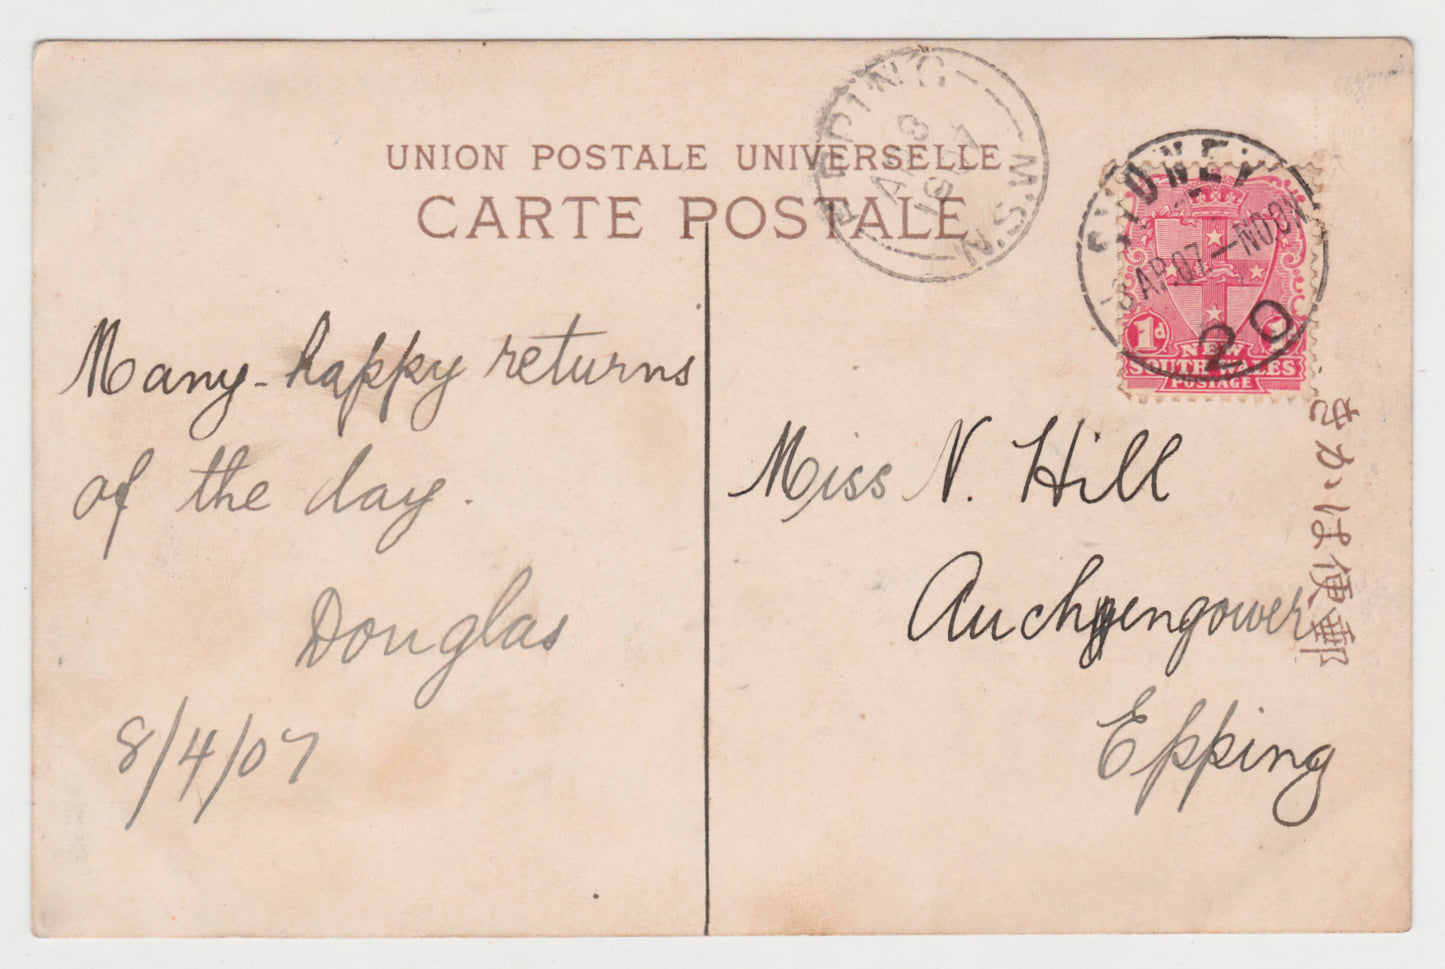 UNION POSTALE UNIVERSELLE
CARTE POSTALE
EPPING
M'S'N
AP 8
1907
SYDNEY
8 AP.07—NOON
20
1d 1d
NEW
SOUTH WALES
POSTAGE
きかは便郵
Many happy returns
of the day.
Douglas
8/4/07
Miss N. Hill
Auchengower
Epping